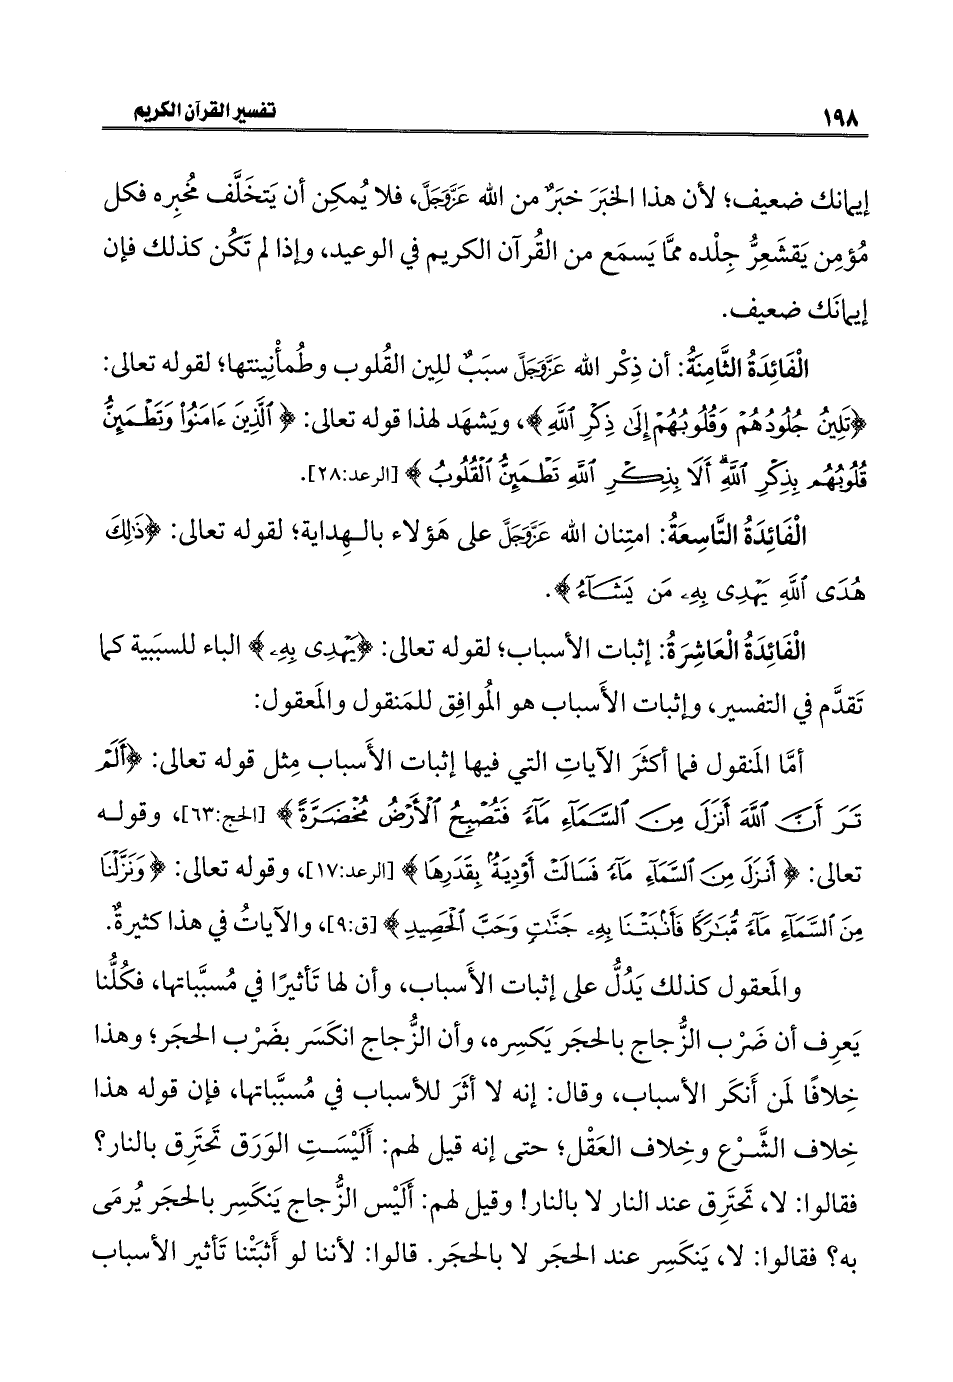 ١٩٨ تفسير القرآن الكريم
إيمانك ضعيف؛ لأن هذا الخبَرَ خبَرٌ من الله عَزَّوَجَلَّ، فلا يُمكِن أن يَتخَلَّف مُخبِره فكل
مُؤمِن يَقشَعِرُّ جِلْده ممَّا يَسمَع من القُرآن الكريم في الوعيد، وإذا لم تَكُن كذلك فإن
إيمانَك ضعيف.
الْفَائِدَةُ الثَّامِنَةُ: أن ذِكْر الله عَزَّوَجَلَّ سبَبٌ للِين القُلوب وطُمأْنِينتها؛ لقوله تعالى:
﴿تَلِينُ جُلُودُهُمۡ وَقُلُوبُهُمۡ إِلَىٰ ذِكۡرِ ٱللَّهِ﴾، ويَشهَد لهذا قوله تعالى: ﴿ٱلَّذِينَ ءَامَنُواْ وَتَطۡمَئِنُّ
قُلُوبُهُم بِذِكۡرِ ٱللَّهِۗ أَلَا بِذِكۡرِ ٱللَّهِ تَطۡمَئِنُّ ٱلۡقُلُوبُ﴾ [الرعد:٢٨].
الْفَائِدَةُ التَّاسِعَةُ: امتِنان الله عَزَّوَجَلَّ على هَؤلاء بالـهِداية؛ لقوله تعالى: ﴿ذَٰلِكَ
هُدَى ٱللَّهِ يَهۡدِى بِهِۦ مَن يَشَآءُ﴾.
الْفَائِدَةُ الْعَاشِرَةُ: إثبات الأسباب؛ لقوله تعالى: ﴿يَهۡدِى بِهِۦ﴾ الباء للسبَبية كما
تَقدَّم في التفسير، وإثبات الأَسباب هو المُوافِق للمَنقول والمَعقول:
أمَّا المَنقول فما أكثَرَ الآياتِ التي فيها إثبات الأَسباب مِثل قوله تعالى: ﴿أَلَمۡ
تَرَ أَنَّ ٱللَّهَ أَنزَلَ مِنَ ٱلسَّمَآءِ مَآءً فَتُصۡبِحُ ٱلۡأَرۡضُ مُخۡضَرَّةً﴾ [الحج:٦٣]، وقولـه
تعالى: ﴿أَنزَلَ مِنَ ٱلسَّمَآءِ مَآءً فَسَالَتۡ أَوۡدِيَةُۢ بِقَدَرِهَا﴾ [الرعد:١٧]، وقوله تعالى: ﴿وَنَزَّلۡنَا
مِنَ ٱلسَّمَآءِ مَآءً مُّبَٰرَكًا فَأَنۢبَتۡنَا بِهِۦ جَنَّٰتٍ وَحَبَّ ٱلۡحَصِيدِ﴾ [ق:٩]، والآياتُ في هذا كثيرةٌ.
والمَعقول كذلك يَدُلُّ على إثبات الأَسباب، وأن لها تَأثيرًا في مُسبَّباتها، فكُلُّنا
يَعرِف أن ضَرْب الزُّجاج بالحجَر يَكسِره، وأن الزُّجاج انكَسَر بضَرْب الحجَر؛ وهذا
خِلافًا لمَن أَنكَر الأسباب، وقال: إنه لا أثَرَ للأسباب في مُسبَّباتها، فإن قوله هذا
خِلاف الشَّرْع وخِلاف العَقْل؛ حتى إنه قيل لهم: أَلَيْسَتِ الوَرَق تَحتَرِق بالنار؟
فقالوا: لا، تَحتَرِق عند النار لا بالنار! وقيل لهم: أَلَيْس الزُّجاج يَنكَسِر بالحجَر يُرمَى
به؟ فقالوا: لا، يَنكَسِر عند الحجَر لا بالحجَر. قالوا: لأننا لو أَثبَتْنا تَأثير الأسباب